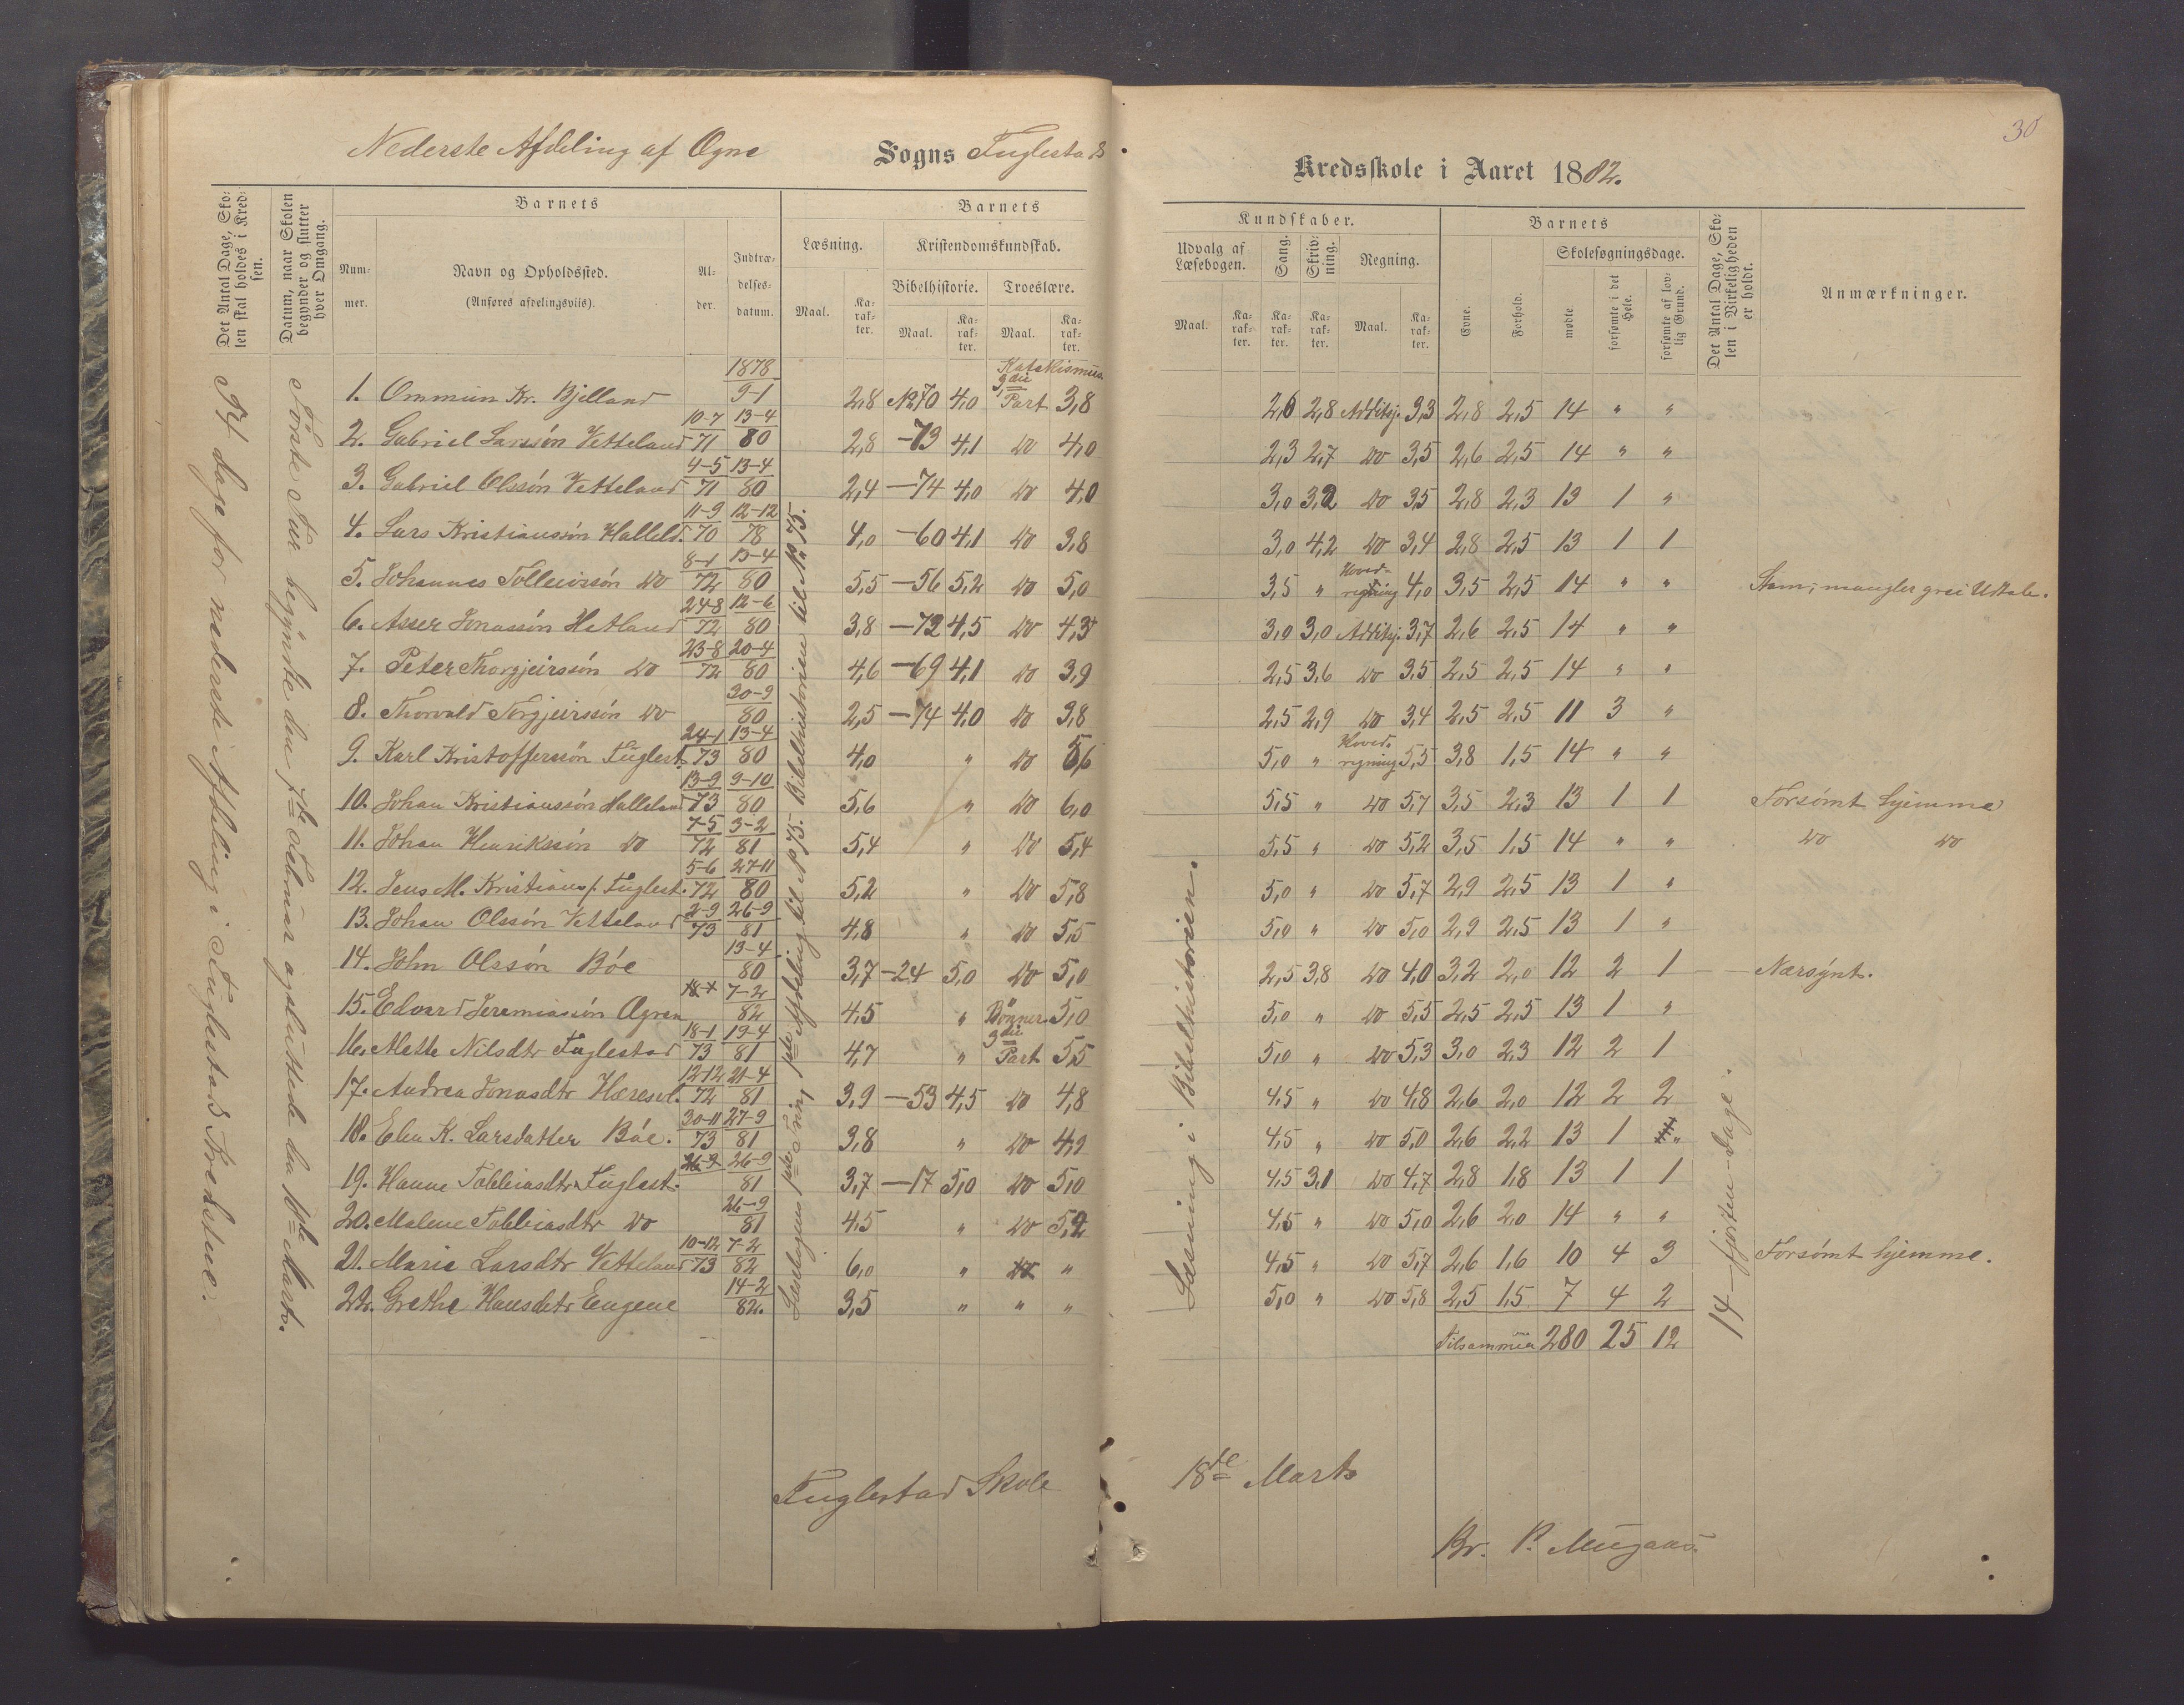 Nederste Afdeling af Ogne Sogns Fuglestad Kredsskole i Aaret 1882.
30
Det Antal Dage, Skolen skal holdes i Kredsen.
Datum, naar Skolen begynder og slutter hver Omgang.
Barnets
Nummer.
Navn og Opholdssted.
(Anføres afdelingsviis).
Alder.
Indtrædelsesdatum.
Barnets
Læsning.
Kristendomskundskab.
Bibelhistorie.
Troeslære.
Maal.
Karakter.
Maal.
Karakter.
Maal.
Karakter.
Kundskaber.
Udvalg af Læsebogen.
Sang.
Skrivning.
Regning.
Maal.
Karakter.
Karakter.
Karakter.
Maal.
Karakter.
Barnets
Evne.
Forhold.
Skolesøgningsdage.
mødte.
forsømte i det Hele.
forsømte af lovlig Grund.
Det Antal Dage, Skolen i Virkeligheden er holdt.
Anmærkninger.
dage for nederste Afdeling i Fuglestad Kredsskole.
Første Tur begyndte den 7de Februar og sluttede den 18de Marts.
Læsebogens 1ste Trin, 1ste Afdeling til No 75. Bibelhistorien til No 75.
Læsning i Bibelhistorien.
14 – fjorten – Dage.
1. Ommun Kr. Bjelland 1878 9-1 2,8 No 70 4,0 Katekismus 3die Part 3,8 2,6 2,8 Additsj. 3,3 2,8 2,5 14 " "
2. Gabriel Larssøn Vetteland 10-7 71 13-4 80 2,8 –73 4,1 do 4,0 2,3 2,7 do 3,5 2,6 2,5 14 " "
3. Gabriel Olssøn Vetteland 4-5 71 13-4 80 2,4 –74 4,0 do 4,0 3,0 3,2 do 3,5 2,8 2,3 13 1 "
4. Lars Kristianssøn Halleld. 11-9 70 12-12 78 4,0 –60 4,1 do 3,8 3,0 4,2 do 3,4 2,8 2,5 13 1 1
5. Johannes Tolleivssøn do 8-1 72 13-4 80 5,5 –56 5,2 do 5,0 3,5 " Hovedregning 4,0 3,5 2,5 14 " " Stam; mangler grei Udtale.
6. Asser Jonassøn Hetland 24-8 72 12-6 80 3,8 –72 4,5 do 4,3 3,0 3,0 Additsj. 3,7 2,6 2,5 14 " "
7. Peter Thorgjeirssøn do 23-8 72 20-4 80 4,6 –69 4,1 do 3,9 2,5 3,6 do 3,5 2,5 2,5 14 " "
8. Thorvald Torgjeirssøn do 30-9 80 2,5 –74 4,0 do 3,8 2,5 2,9 do 3,4 2,5 2,5 11 3 "
9. Karl Kristofferssøn Fuglest. 24-1 73 13-4 80 4,0 " do 5,6 5,0 " Hovedregning 5,5 3,8 1,5 14 " "
10. Johan Kristianssøn Halleland 13-9 73 9-10 80 5,6 " do 6,0 5,5 " do 5,7 3,5 2,3 13 1 1 Forsømt hjemme
11. Johan Henrikssøn do 7-5 72 3-2 81 5,4 " do 5,4 5,5 " do 5,2 3,5 1,5 14 " " do do
12. Jens M. Kristians s. Fuglest. 5-6 72 27-11 80 5,2 " do 5,8 5,0 " do 5,7 2,9 2,5 13 1 "
13. Johan Olssøn Vetteland 2-9 73 26-9 81 4,8 " do 5,5 5,0 " do 5,0 2,9 2,5 13 1 "
14. John Olssøn Bøe 13-4 80 3,7 –24 5,0 do 5,0 2,5 3,8 do 4,0 3,2 2,0 12 2 1 – Nærsynt.
15. Edvard Jeremiassøn Ogren 7-2 82 4,5 " Bønner. 5,0 5,0 " do 5,5 2,5 2,5 13 1 "
16. Mette Nilsdtr Fuglestad 18-1 73 19-4 81 4,7 " 3die Part 5,5 5,0 " do 5,3 3,0 2,3 12 2 1
17. Andrea Jonasdtr Hæresvl. 12-12 72 21-4 81 3,9 –53 4,5 do 4,8 4,5 " do 4,8 2,6 2,0 12 2 2
18. Elen K. Larsdatter Bøe. 30-11 73 27-9 81 3,8 " do 4,9 4,5 " do 5,0 2,6 2,2 13 1 "
19. Hanne Tobbiasdtr Fuglest. 26-9 81 3,7 –17 5,0 do 5,0 4,5 3,1 do 4,7 2,8 1,8 13 1 1
20. Malene Tobbiasdtr do 26-9 81 4,5 " do 5,2 4,5 " do 5,0 2,6 2,0 14 " "
21. Marie Larsdtr Vetteland 10-12 73 7-2 82 6,0 " " 4,5 " do 5,7 2,6 1,6 10 4 3 Forsømt hjemme.
22. Grethe Hansdatr Eugene 14-2 82. 3,5 " " " 5,0 " do 5,8 2,5 1,5 7 4 2
Tilsammen 280 25 12
Fuglestad Skole 18de Marts
Br. P. Mugaas.